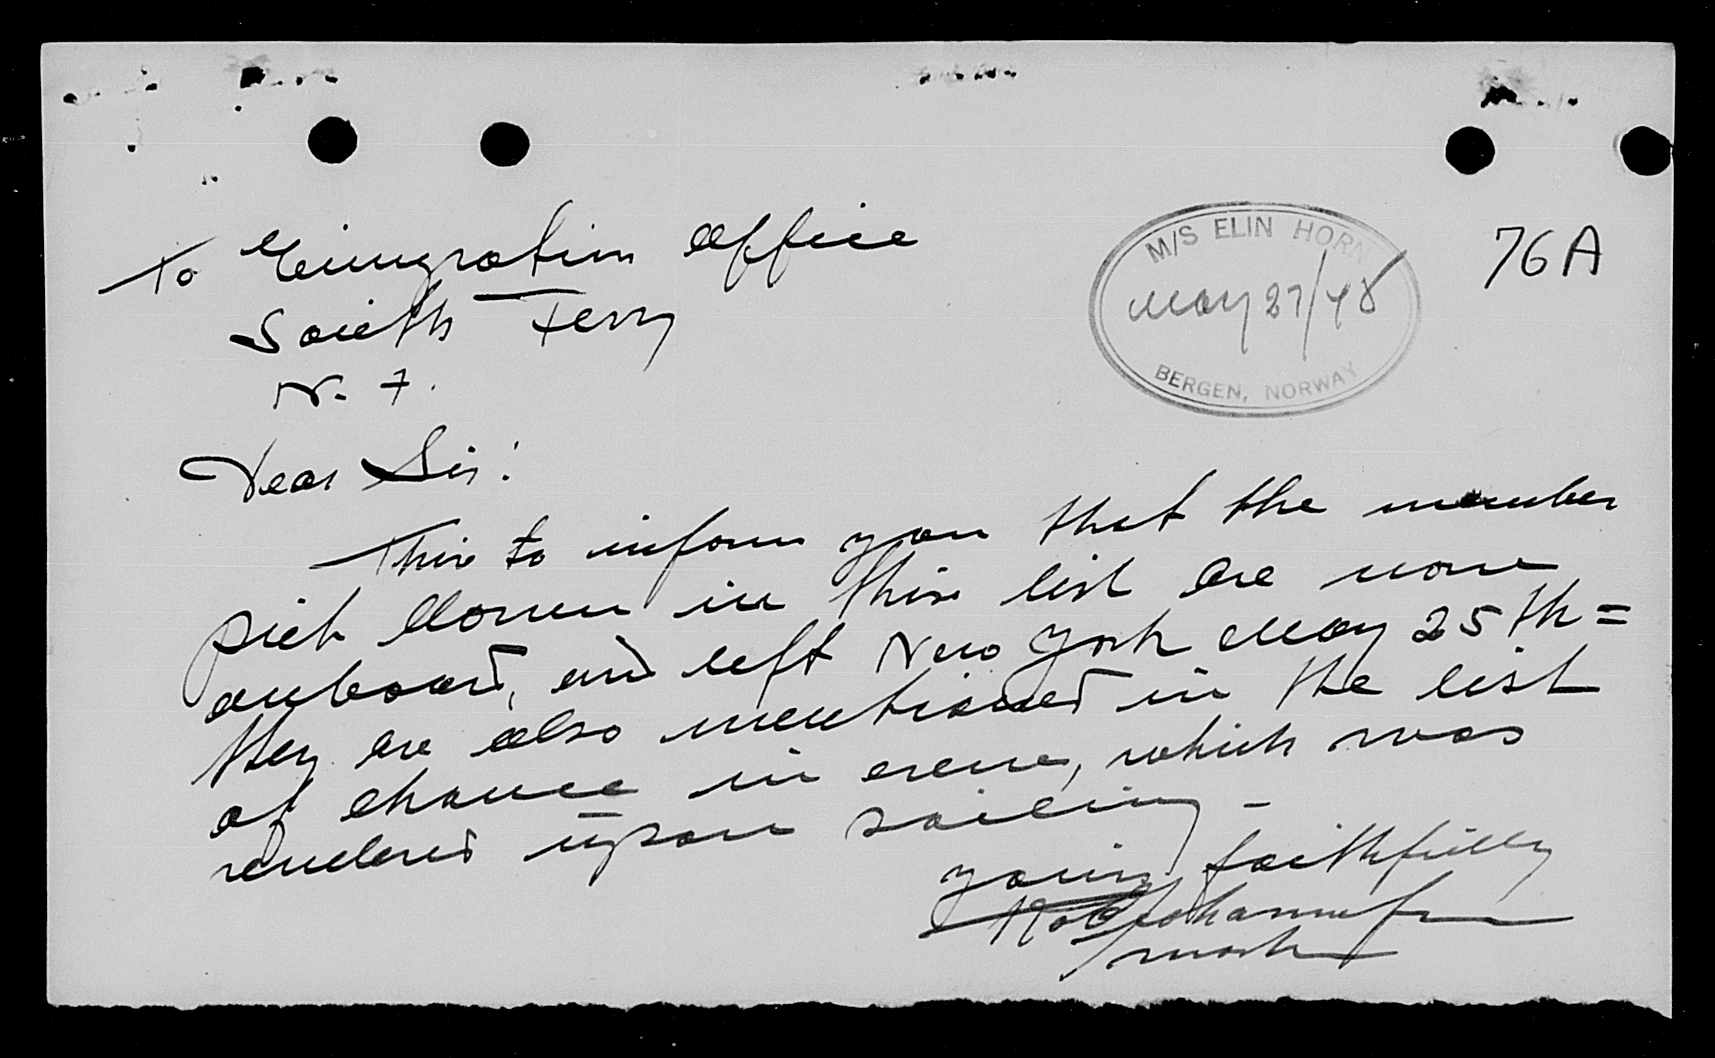 To Emigration Office
South Ferry
N. Y.
M/S ELIN HORN
May 27/48
BERGEN, NORWAY
76A
Dear Sir:
This to inform you that the member
in this list are now
onboard, and left New York May 25th=
they are also mentioned in the list
of chance in crew, which was
rendered upon sailing -
yours faithfully